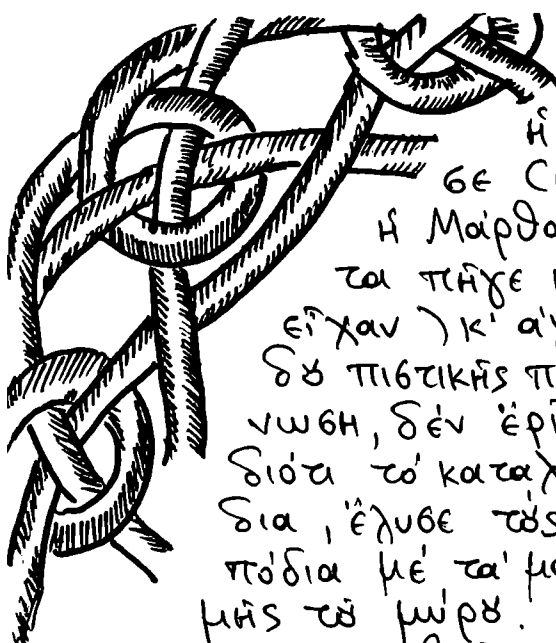 ἡ
σε
ἡ Μάρθα
τα πῆγε
εἶχαν) κ' ἀ
δȣ πιστικῆς π
νωση, δέν ἔρι
διότι τό κατα
δια, ἔλυσε τȣ́ς
πόδια μέ τά μ
μῆς τȣ͂ μύρȣ.